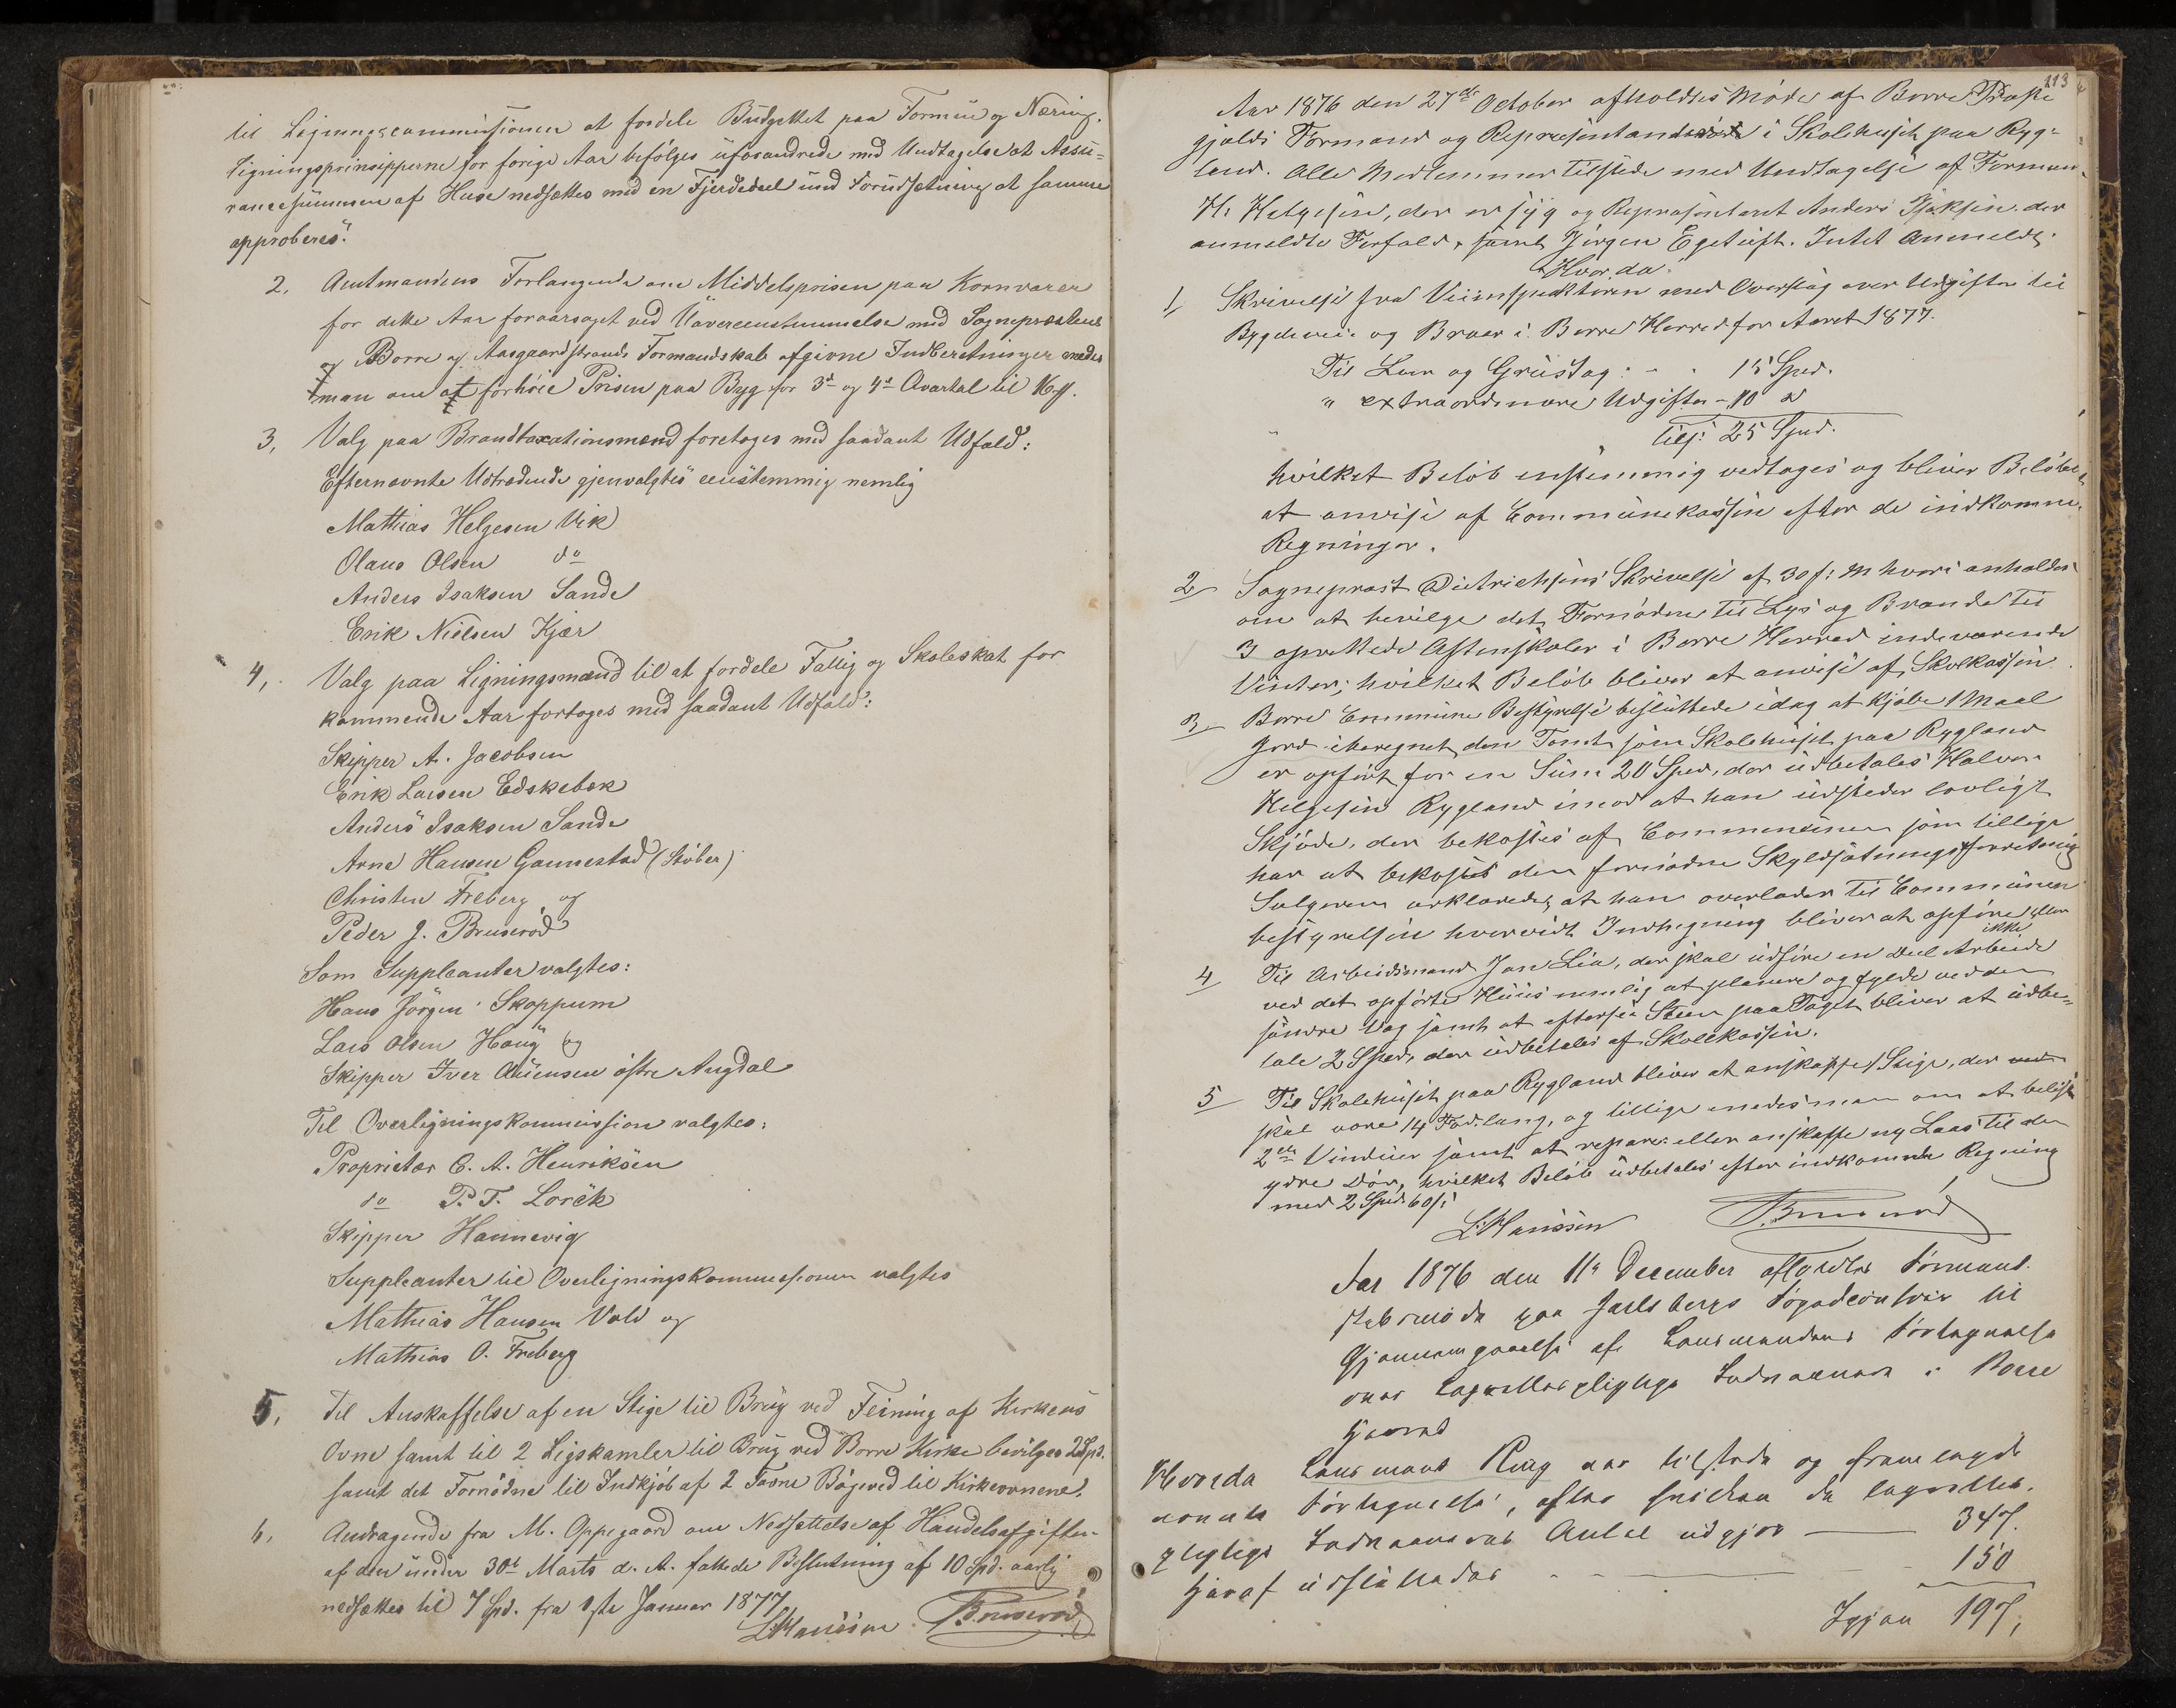 til Ligningscommissionen at fordele Budgettet paa Formue og Næring.
Ligningsprinsipperne for forige Aar befølges uforandrede med Undtagelse at Assu=
rancesummen af Huse nedsættes med en Fjerdedeel und Forudsætning at samme
approberes".
2, Amtmandens Forlangende om Middelsprisen paa Kornvarer
for dette Aar foraarsaget ved Uovereenstemmelse med Sogneprestens
og Borre og Aasgaardstrands Formandskab afgivne Indberetninger enedes
man om at forhöie Prisen paa Byg for 3d og 4d Qvartal til 16 ß.
3, Valg paa Brandtaxationsmænd foretoges med saadant Udfald:
Efternævnte Udtrædende gjenvalgtes eenstemmig nemlig
Mathias Helgesen Vik
Olaus Olsen do
Anders Isaksen Sande
Erik Nielsen Kjær
4, Valg paa Ligningsmænd til at fordele Fattig og Skoleskat for
kommende Aar fortoges med saadant Udfald:
Skipper A. Jacobsen
Erik Larsen Edskebek
Anders Isaksen Sande
Arne Hansen Gannestad (Støber)
Christen Freberg og
Peder J. Bruserød
Som Suppleanter valgtes:
Hans Jörgen Skoppum
Lars Olsen Haug og
Skipper Iver östre Augdal
Til Overligningskommission valgtes:
Proprietær C. A. Henriksen
do P. T. Lorck
Skipper Hannevig
Suppleanter til Overligningskommissionen valgtes
Mathias Hansen Vold og
Mathias O. Freberg
5, Til Anskaffelse af en Stige til Brug ved Feining af Kirkens
Ovne samt til 2 Ligskamler til Brug ved Borre Kirke bevilges 2 Spd.
samt det Fornödne til Indkjöb af 2 Favne Bögeved til Kirkeovnene.
6, Andragende fra M. Oppegaard om Nedsættelse af Handelsafgiften
af den under 30t Marts d. A. fattede Beslutning af 10 Spd. aarlig
nedsættes til 7 Spd. fra 1ste Januar 1877
L. Hanssen Bruserød
113
Aar 1876 den 27de October afholdtes Møde af Borre Præste
gjelds Formænd og Repræsentanter i Skolehuset paa Ryg=
land. Alle Medlemmer tilstede med Undtagelse af Forman.
H. Helgesen, der er syg og Repræsentant Anders Isaksen der
anmeldte Forfald, samt Jörgen Egetuft. Intet Anmeldt.
Hvor da:
1 Skrivelse fra Veiinspekteren med Overslag over Udgifter til
Bygdeveie og Broer i Borre Herred for Aaret 1877.
Til Leer og Grustag: - - 15 Spd.
" extraordinære Udgifter - 10 "
tils: 25 Spd.
hvilket Beløb enstemmig vedtoges og bliver Beløbet
at anvise af Communekassen efter de indkomne
Regninger.
2 Sogneprest Dietrichsens Skrivelse af 30 f: M hvori anholdes
om at bevilge det Fornødne til Lys og Brænde til
3 oprettede Aftenskoler i Borre Herred indeværende
Vinter; hvilket Beløb bliver at anvise af Skolkassen.
3 Borre Commune Bestyrelse besluttede idag at kjøbe 1 Maal
Jord iberegnet den Tomt som Skolehuset paa Rygland
er opført for en Sum 20 Spd, der udbetales Halvor
Helgesen Rygland imod at han udsteder lovligt
Skjøde, der bekostes af Communen som tillige
har at bekostes den fornødne Skyldsætningsforretning
Sælgeren erklærede, at han overlader til Commune
bestyrelsen hvorvidt Indhegning bliver at opføre eller
ikke
4 Til Arbeidsmand Jan Lia, der skal udføre en Deel Arbeide
ved det opførte Huus nemlig at planere og fylde ved den
søndre Væg samt at efterse Steen paa Taget bliver at udbe=
tale 2 Spd, der udbetales af Skolekassen.
5 Til Skolehuset paa Rygland bliver at anskaffe 1 Stige, der
skal være 14 Fod lang, og tillige enedes man om at
2de Vinduer samt at reparere eller anskaffe ny Laas til den
ydre Dør, hvilket Beløb udbetales efter indkomne Regning
med 2 Spd. 60 ß
L. Hanssen Bruserød
Aar 1876 den 11te December afholdtes Formand.
skabsmøde paa Jarlsbergs Fogedcontoir til
Gjennemgaaelse af Lensmandens Fortegnelse
over Lægsrulle pligtige Indvaanere i Borre
Herred
Hvorda Lensmand Ring var tilstede og fremlagde
nævnte Fortegnelse, efter hvilken de lægsrulle.
pligtige Indvaaneres Antal udgjør — 347.
Heraf udslettedes - - — 150
Igjen 197,